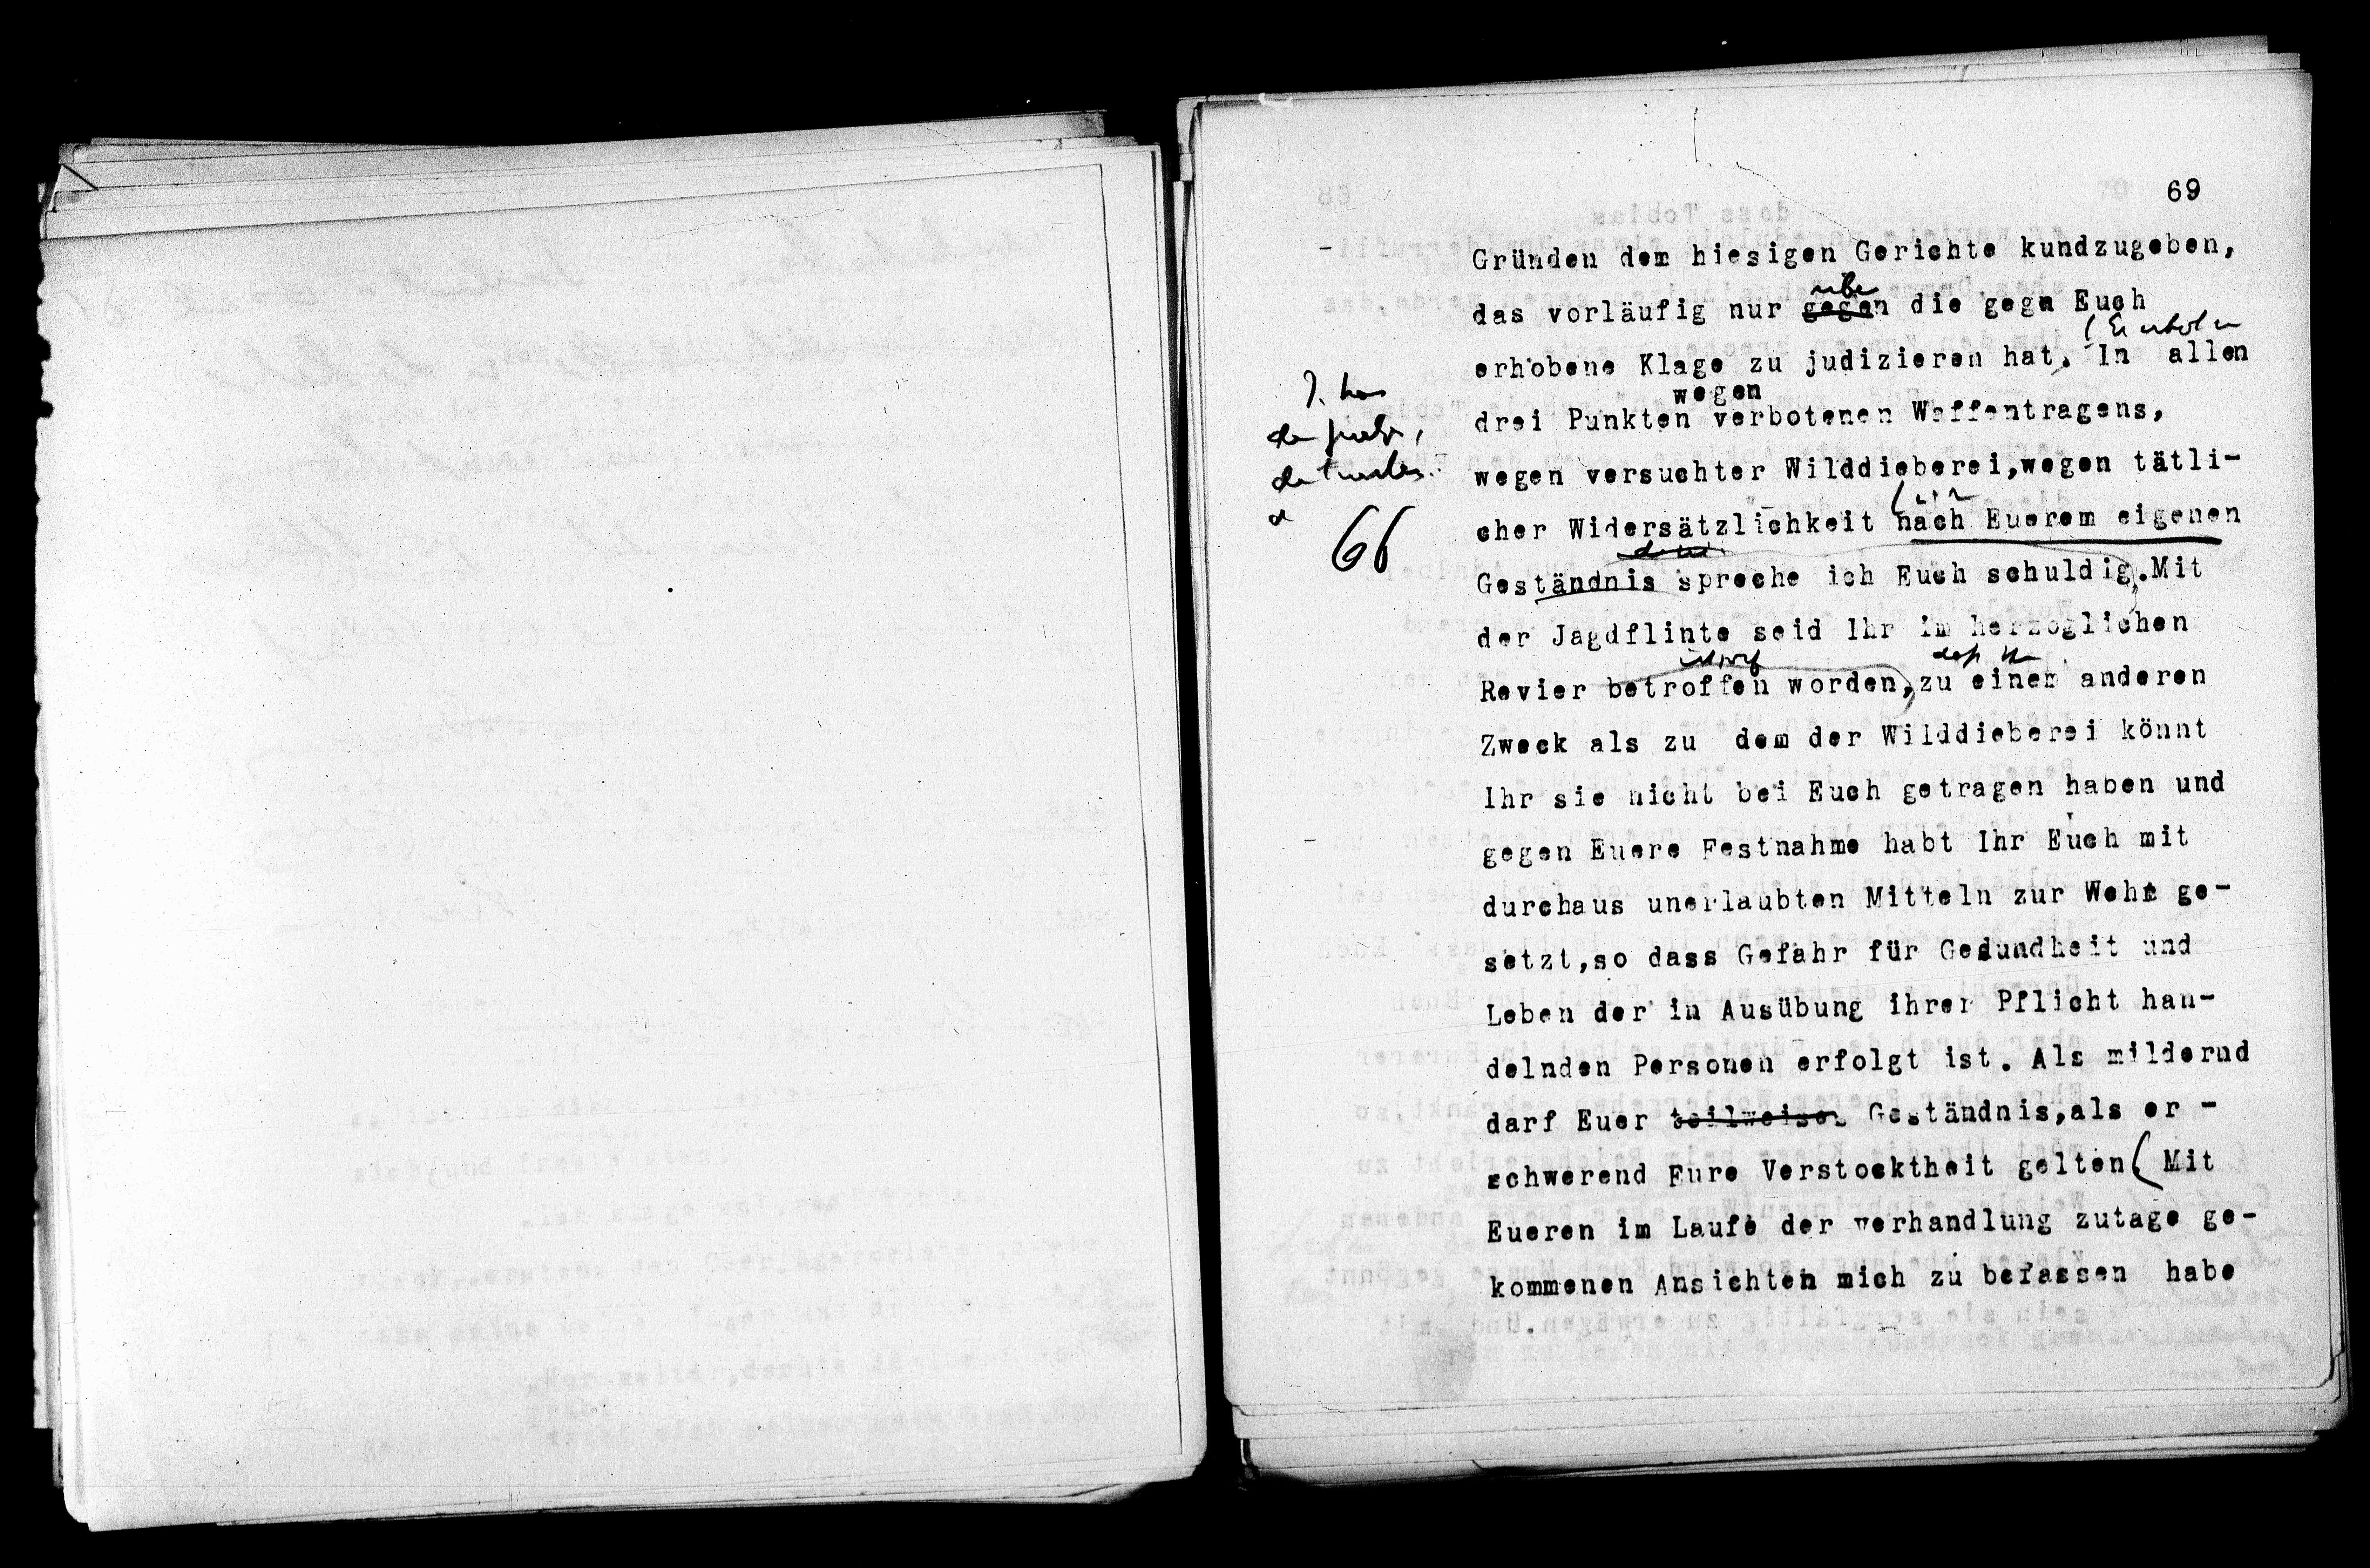 69
Gründen dem hiesigen Gerichte kundzugeben,
über
das vorläufig nur gegen die gegn Euch
erhobene Klage zu judizieren hat. In allen
wegen
drei Punkten verbotenen Waffentragens,
wegen versuchter Wilddieberei,wegen tätli-
cher Widersätzlichkeit nach Euerem eigenen
66
Geständnis spreche ich Euch schuldig.Mit
der Jagdflinte seid Ihr im herzoglichen
Revier betroffen worden,zu einem anderen
Zweck als zu dem der Wilddieberei könnt
Ihr sie nicht bei Euch getragen haben und
gegen Euere Festnahme habt Ihr Euch mit
durchaus unerlaubten Mitteln zur Wehr ge-
setzt,so dass Gefahr für Gesundheit und
Leben der in Ausübung ihrer Pflicht han-
delnden Personen erfolgt ist. Als mildernd
darf Euer teilweises Geständnis,als er -
schwerend Eure Verstocktheit gelten( Mit
Eueren im Laufe der verhandlung zutage ge-
kommenen Ansichten mich zu befassen habe